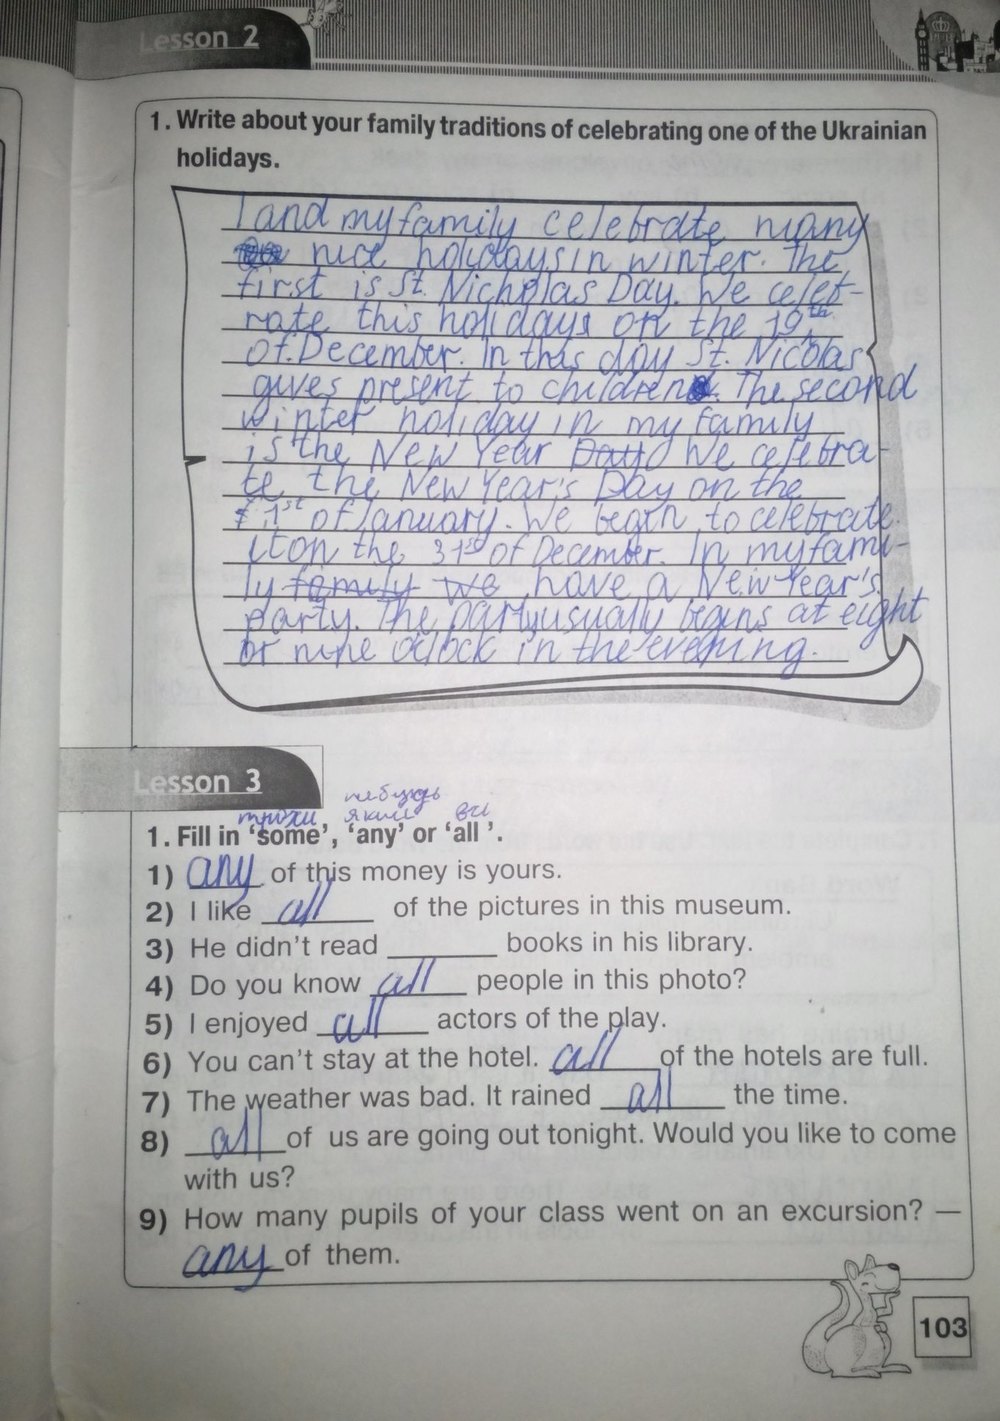 Lesson 2
1. Write about your family traditions of celebrating one of the Ukrainian
holidays.
I and my family celebrate many
nice holidays in winter. The
first is St. Nicholas Day. We celeb-
rate this holidays on the 19th
of December. In this day St. Nicolas
gives present to children. The second
winter holiday in my family
is the New Year Day We celebra-
te the New Year's Day on the
1st of January. We begin to celebrate
it on the 31st of December. In my fami-
ly family we have a New Year's
party. The party usually begins at eight
or nine o'clock in the evening.
Lesson 3
небудь
трохи які всі
1. Fill in 'some', 'any' or 'all '.
1) any of this money is yours.
2) I like all of the pictures in this museum.
3) He didn't read ______ books in his library.
4) Do you know all people in this photo?
5) I enjoyed all actors of the play.
6) You can't stay at the hotel. all of the hotels are full.
7) The weather was bad. It rained all the time.
8) all of us are going out tonight. Would you like to come
with us?
9) How many pupils of your class went on an excursion? —
any of them.
103